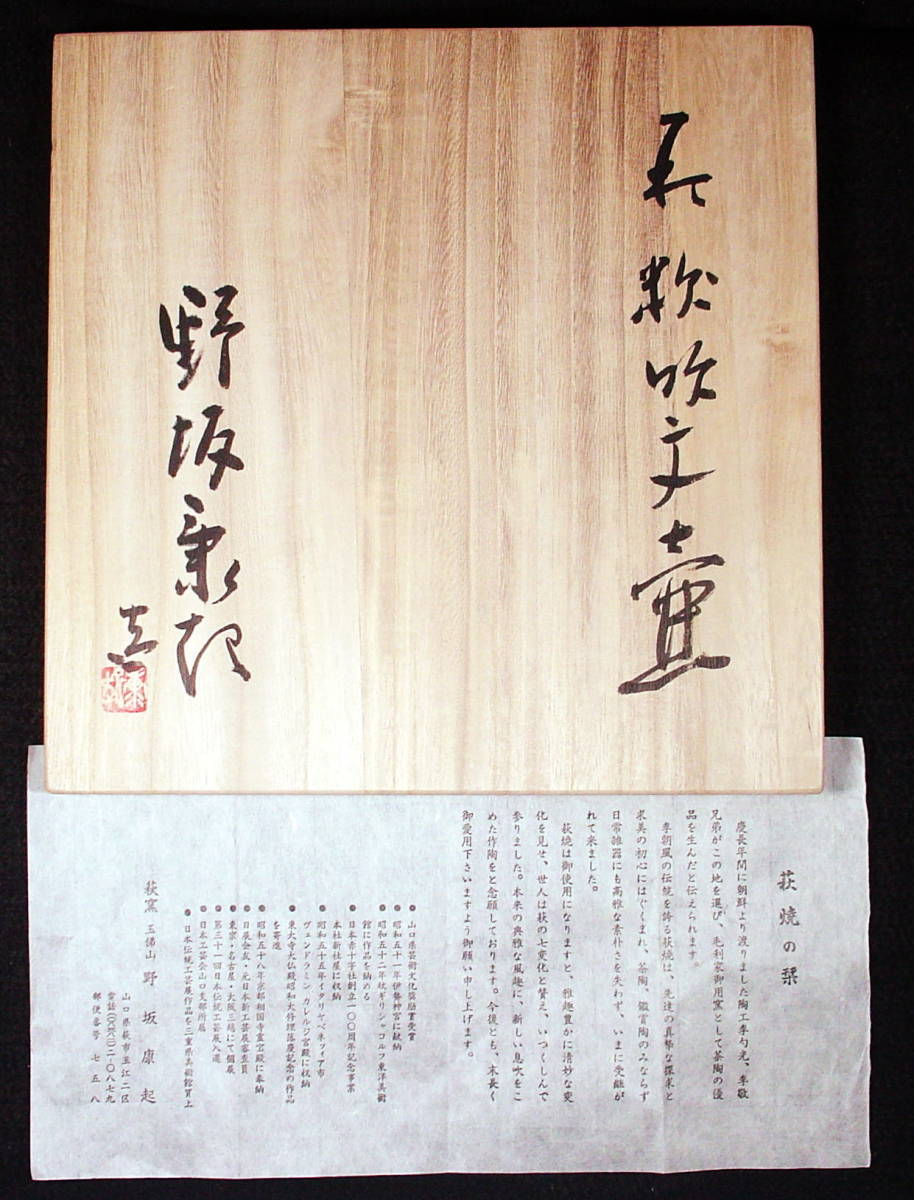 萩粉吹文壷
野坂康起
造
萩焼の栞
慶長年間に朝鮮より渡りました陶工李勺光、李敬
兄弟がこの地を選び、毛利家御用窯として茶陶の優
品を生んだと伝えられます。
李朝風の伝統を誇る萩焼は、先達の真摯な探求と
求美の初心にはぐくまれ、茶陶、鑑賞陶のみならず
日常雑器にも高雅な素朴さを失わず、いまに受継が
れて来ました。
萩焼は御使用になりますと、雅趣豊かに清妙な変
化を見せ、世人は萩の七変化と賛え、いつくしんで
参りました。本来の典雅な風趣に、新しい息吹をこ
めた作陶をと念願しております。今後とも、末長く
御愛用下さいますよう御願い申し上げます。
●山口県芸術文化奨励賞受賞
●昭和五十一年伊勢神宮に献納
●昭和五十二年ギリシャコルフ東洋美術
館に作品を納める
●日本赤十字社創立一〇〇周年記念事業
本社新社屋に収納
●昭和五十五年イタリヤベネフィア市
ヴェンドラミン・カレルジ宮殿に収納
●東大寺大仏殿昭和大修理落慶記念の作品
を寄進
●昭和五十八年京都相国寺霊宮殿に奉納
●日展会友・元日本新工芸展審査員
●東京・名古屋・大阪三越にて個展
●第三十一回日本伝統工芸展入選
●日本工芸会山口支部所属
●日本伝統工芸展作品を三重県美術館買上
萩窯 玉佛山 野坂康起
山口県萩市玉江二区
電話(〇八三八)二-〇八七九
郵便番号 七五八